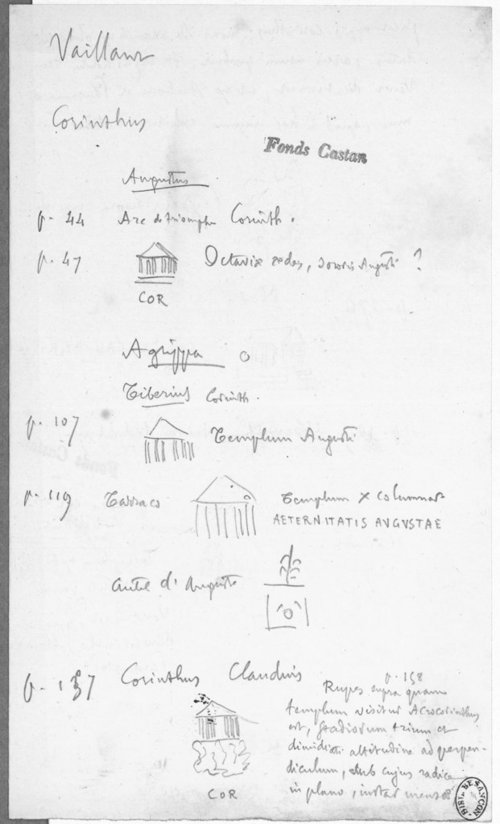 Vaillant
Corinthus
Fonds Castan
Augustus
p. 44 Arc de triomphe Corinth.
p. 47 Octaviæ ædes, sororis Augusti ?
COR
Agrippa O
Tiberius Corinth.
p. 107 Templum Augusti
p. 119 Tarraco Templum X columnar
AETERNITATIS AVGVSTAE
autel d'Auguste
p. 157 Corinthus Claudius
p. 158
Rupes supra quam
templum visitur Acrocorinthus
est, stadiorum trium et
dimidii altitudine ad perpen-
diculum, sub cujus radice
in plano, instar mensæ
COR